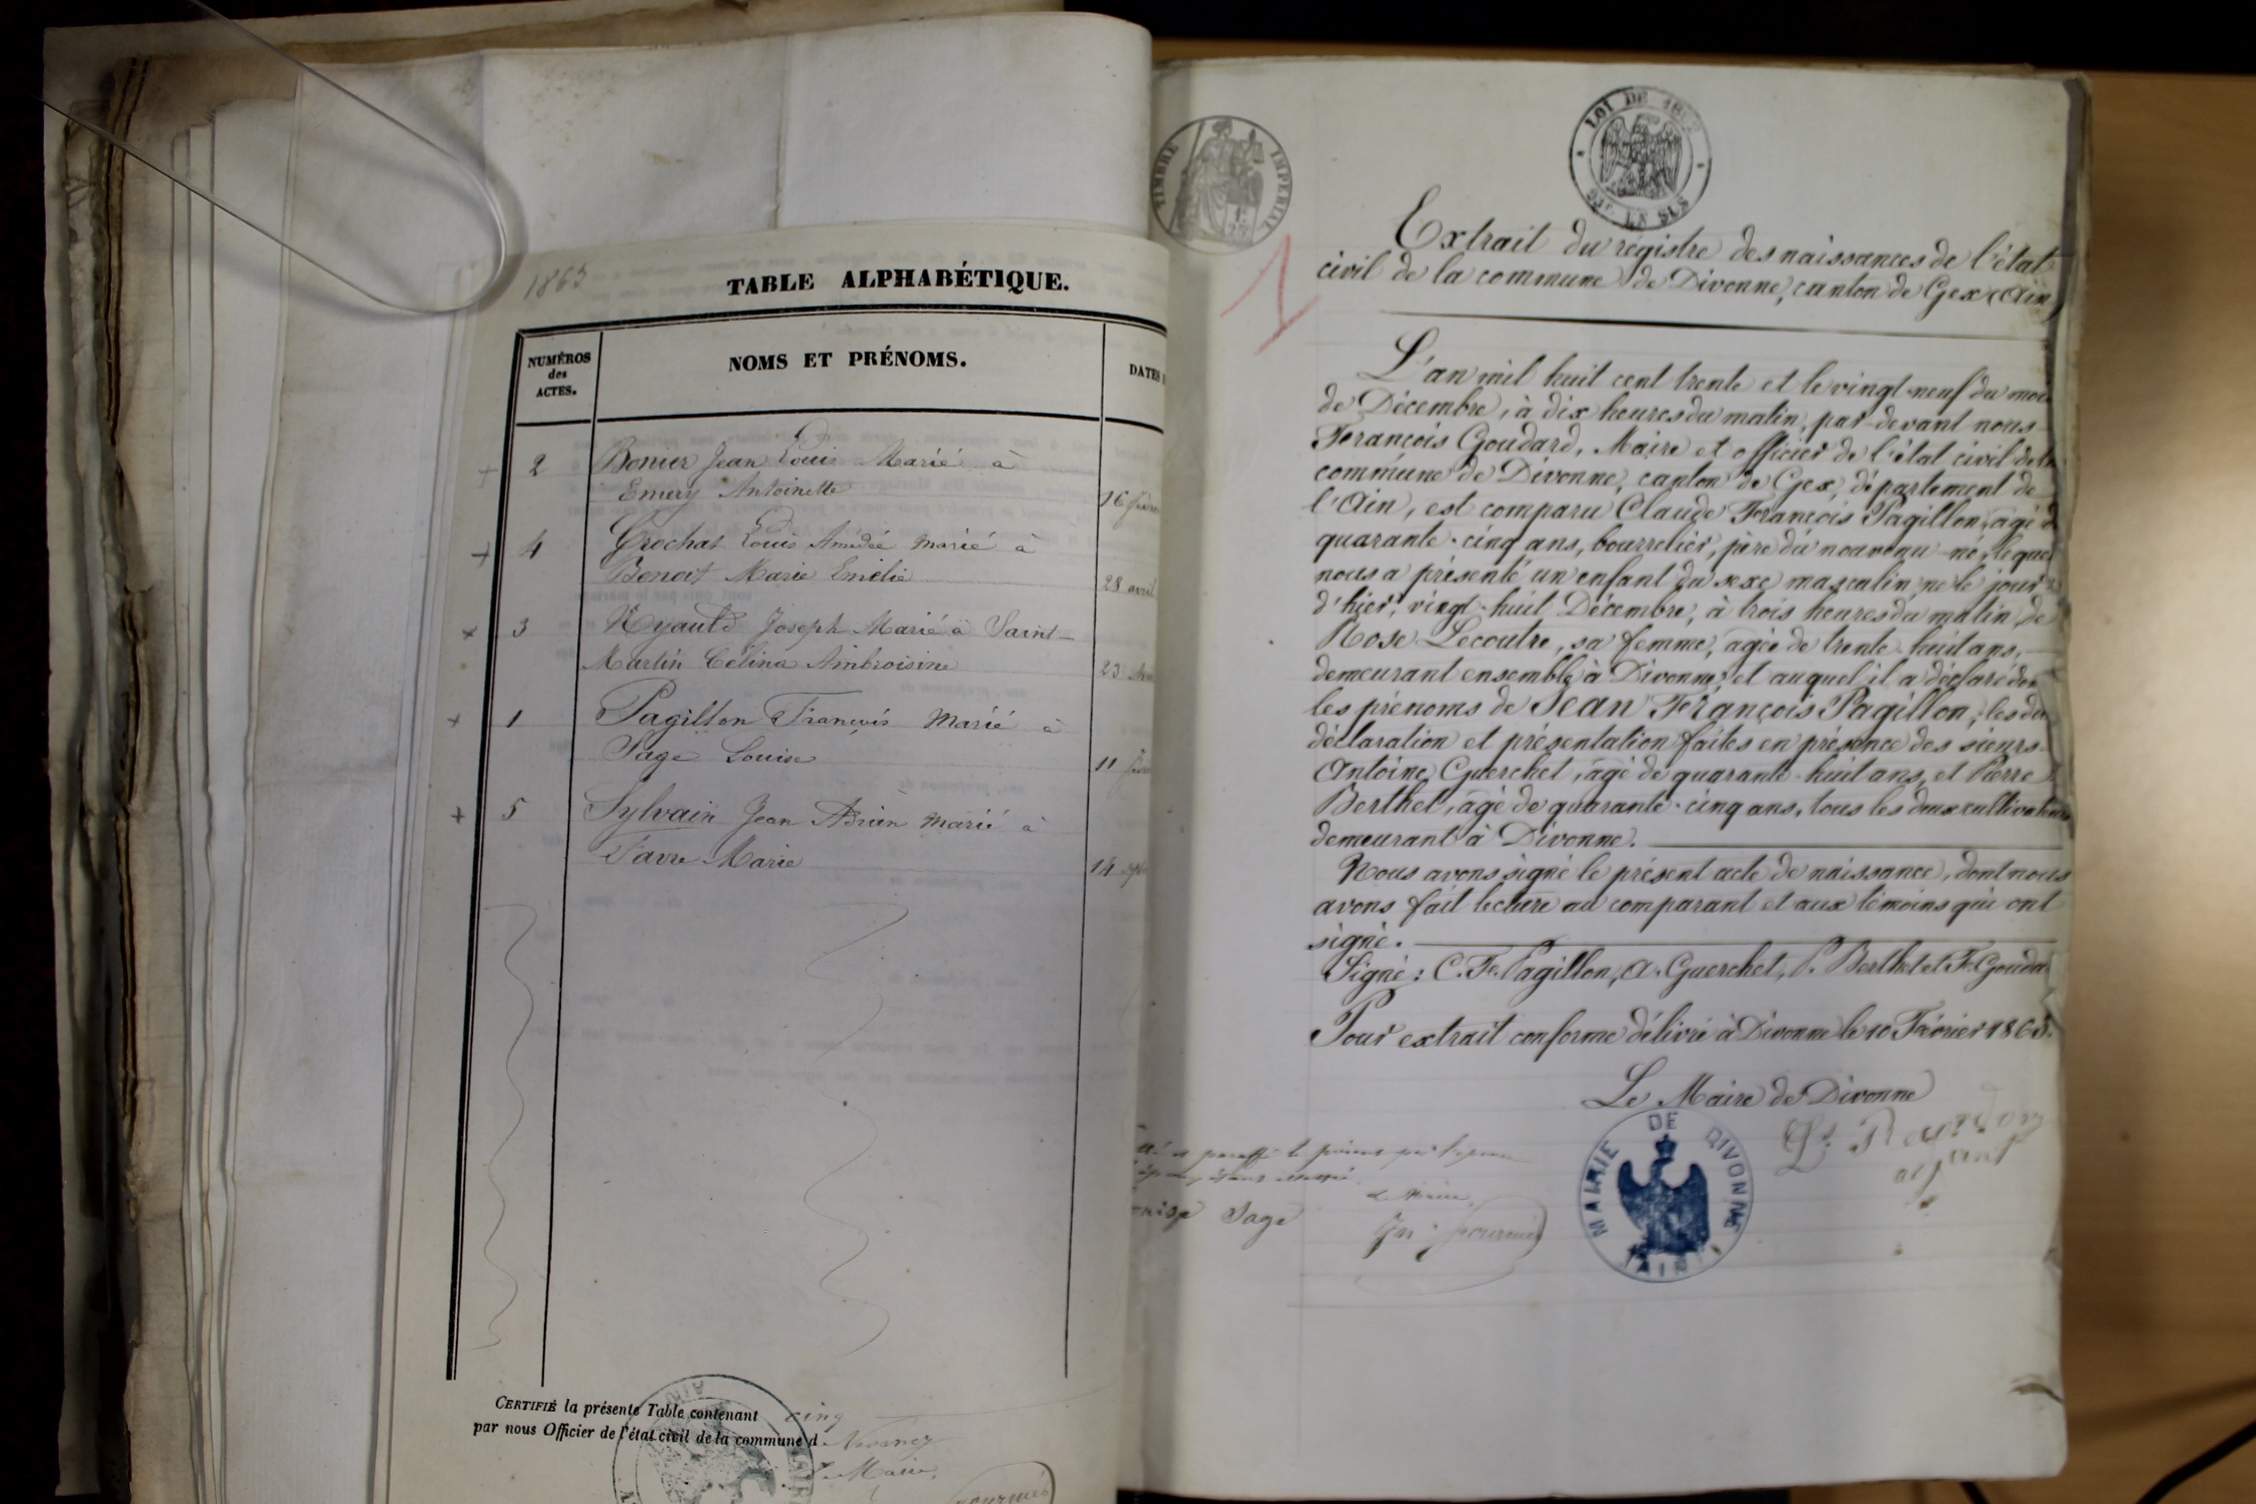 1863
TABLE ALPHABÉTIQUE.
NUMÉROS
des
ACTES.
NOMS ET PRÉNOMS.
DATES
2 Bonier Jean Louis Marié à
Emery Antoinette 16
4 Grochat Louis Amédée marié à
Benoit Marie Emélie 28 avril
3 Nyauld Joseph Marié à Saint-
Martin Célina Ambroisine 23
1 Pagillon François Marié à
Page Louise 11
5 Sylvain Jean Adrien marié à
Favre Marie 14
CERTIFIÉ la présente Table contenant cinq
par nous Officier de l'état civil de la commune d
Maire
TIMBRE IMPERIAL
LOI DE
EN SUS
1
Extrait du régistre des naissances de l'état
civil de la commune de Divonne, canton de Gex (Ain)
L'an mil huit cent trente et le vingt-neuf du mois
de Décembre, à dix heures du matin, par-devant nous
François Goudard, Maire et officier de l'état civil de la
commune de Divonne, canton de Gex, département de
l'Ain, est comparu Claude François Pagillon, agé d
quarante-cinq ans, bourrelier, père du nouveau-né, leque
nous a présenté un enfant du sexe masculin, né le jour
d'hier, vingt-huit Décembre, à trois heures du matin, de
Rose Lecoultre, sa femme, agée de trente-huit ans,
demeurant ensemble à Divonne, et auquel il a déclaré don
les prénoms de Jean François Pagillon; les di
déclaration et présentation faites en présence des sieurs
Antoine Guerchet, agé de quarante-huit ans, et Pierre
Berthet, agé de quarante-cinq ans, tous les deux cultivateurs
demeurant à Divonne.
Nous avons signé le présent acte de naissance, dont nous
avons fait lecture au comparant et aux témoins qui ont
signé.
Signé: C. Fs. Pagillon, A. Guerchet, P. Berthet et F. Gouda
Pour extrait conforme délivré à Divonne le 10 Février 1863.
Le Maire de Divonne
MAIRIE DE DIVONNE
(AIN)
Page